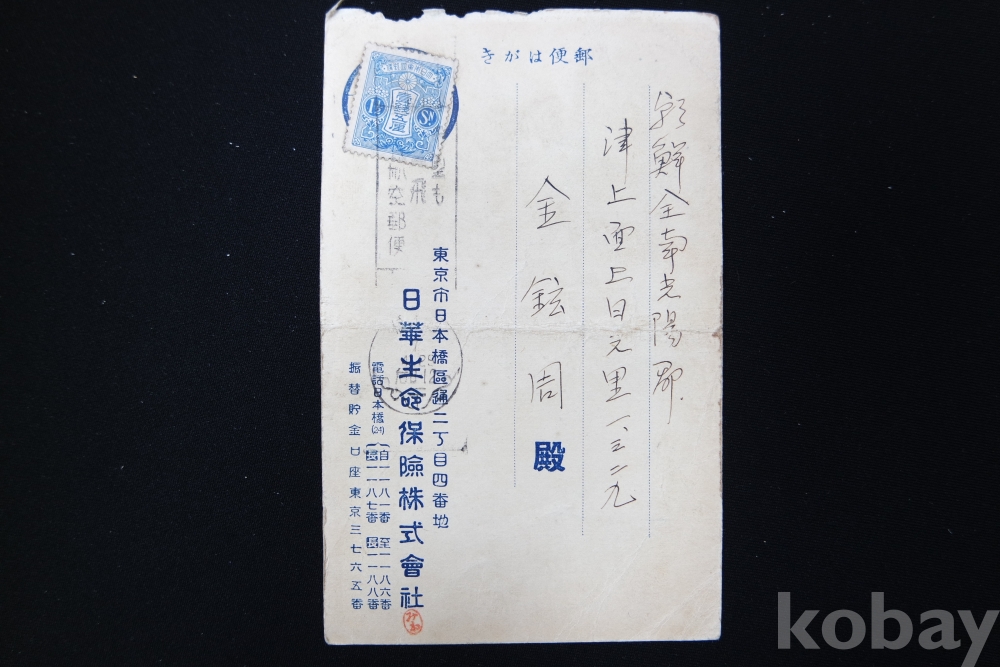 郵便はがき
朝鮮全南光陽郡
津上面上日元里一三二九
金鉉周
殿
東京市日本橋區通二丁目四番地
日華生命保險株式會社
電話日本橋(24)
自一一八一番 至一一八六番
長一一八七番 長一一八八番
振替貯金口座東京三七六五番
1½
Sn.
航空郵便
飛
も
kobay